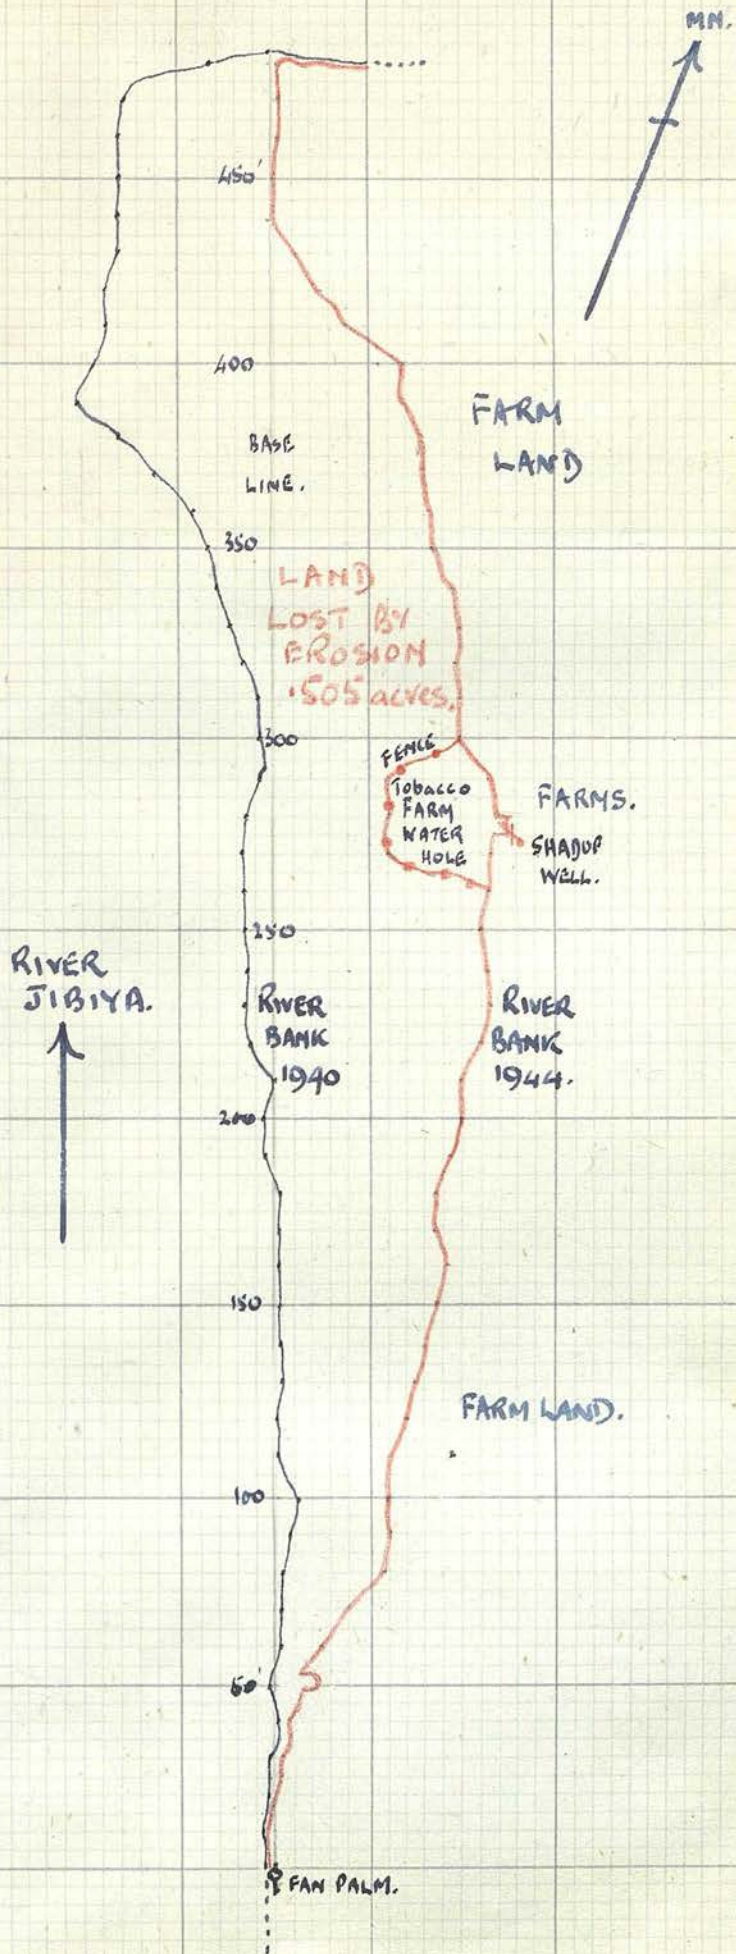 MN.
450'
400
FARM
LAND
BASE
LINE.
350
LAND
LOST BY
EROSION
.505 acres.
300
FENCE
Tobacco
FARM
WATER
HOLE
FARMS.
SHADUF
WELL.
250
RIVER
JIBIYA.
RIVER
BANK
1940
RIVER
BANK
1944.
200
150
FARM LAND.
100
50'
FAN PALM.